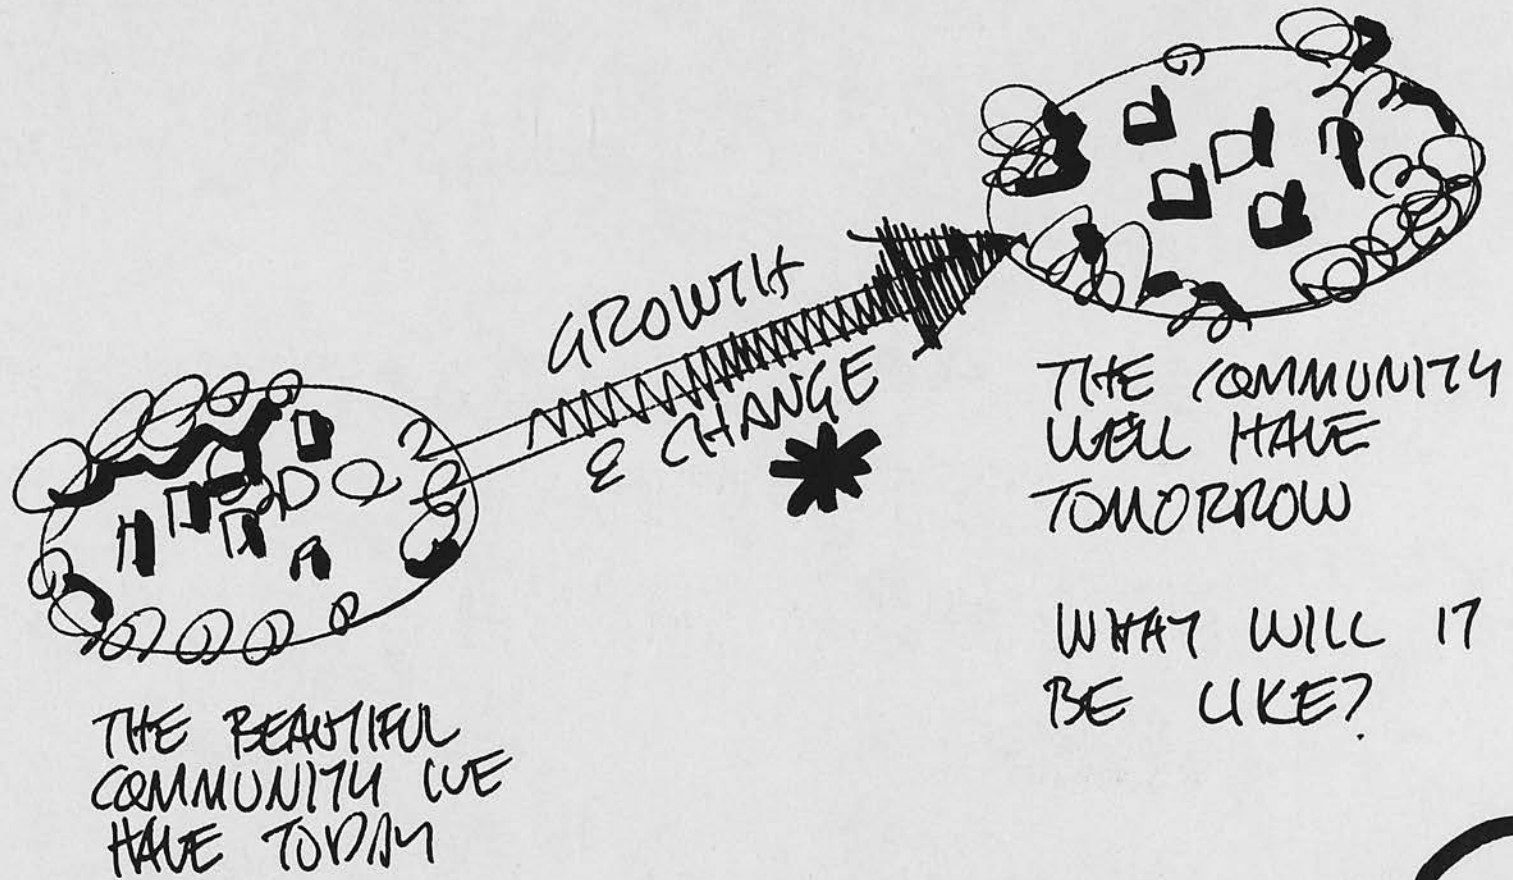 GROWTH
& CHANGE
*
THE COMMUNITY
WE'LL HAVE
TOMORROW
WHAT WILL IT
BE LIKE?
THE BEAUTIFUL
COMMUNITY WE
HAVE TODAY